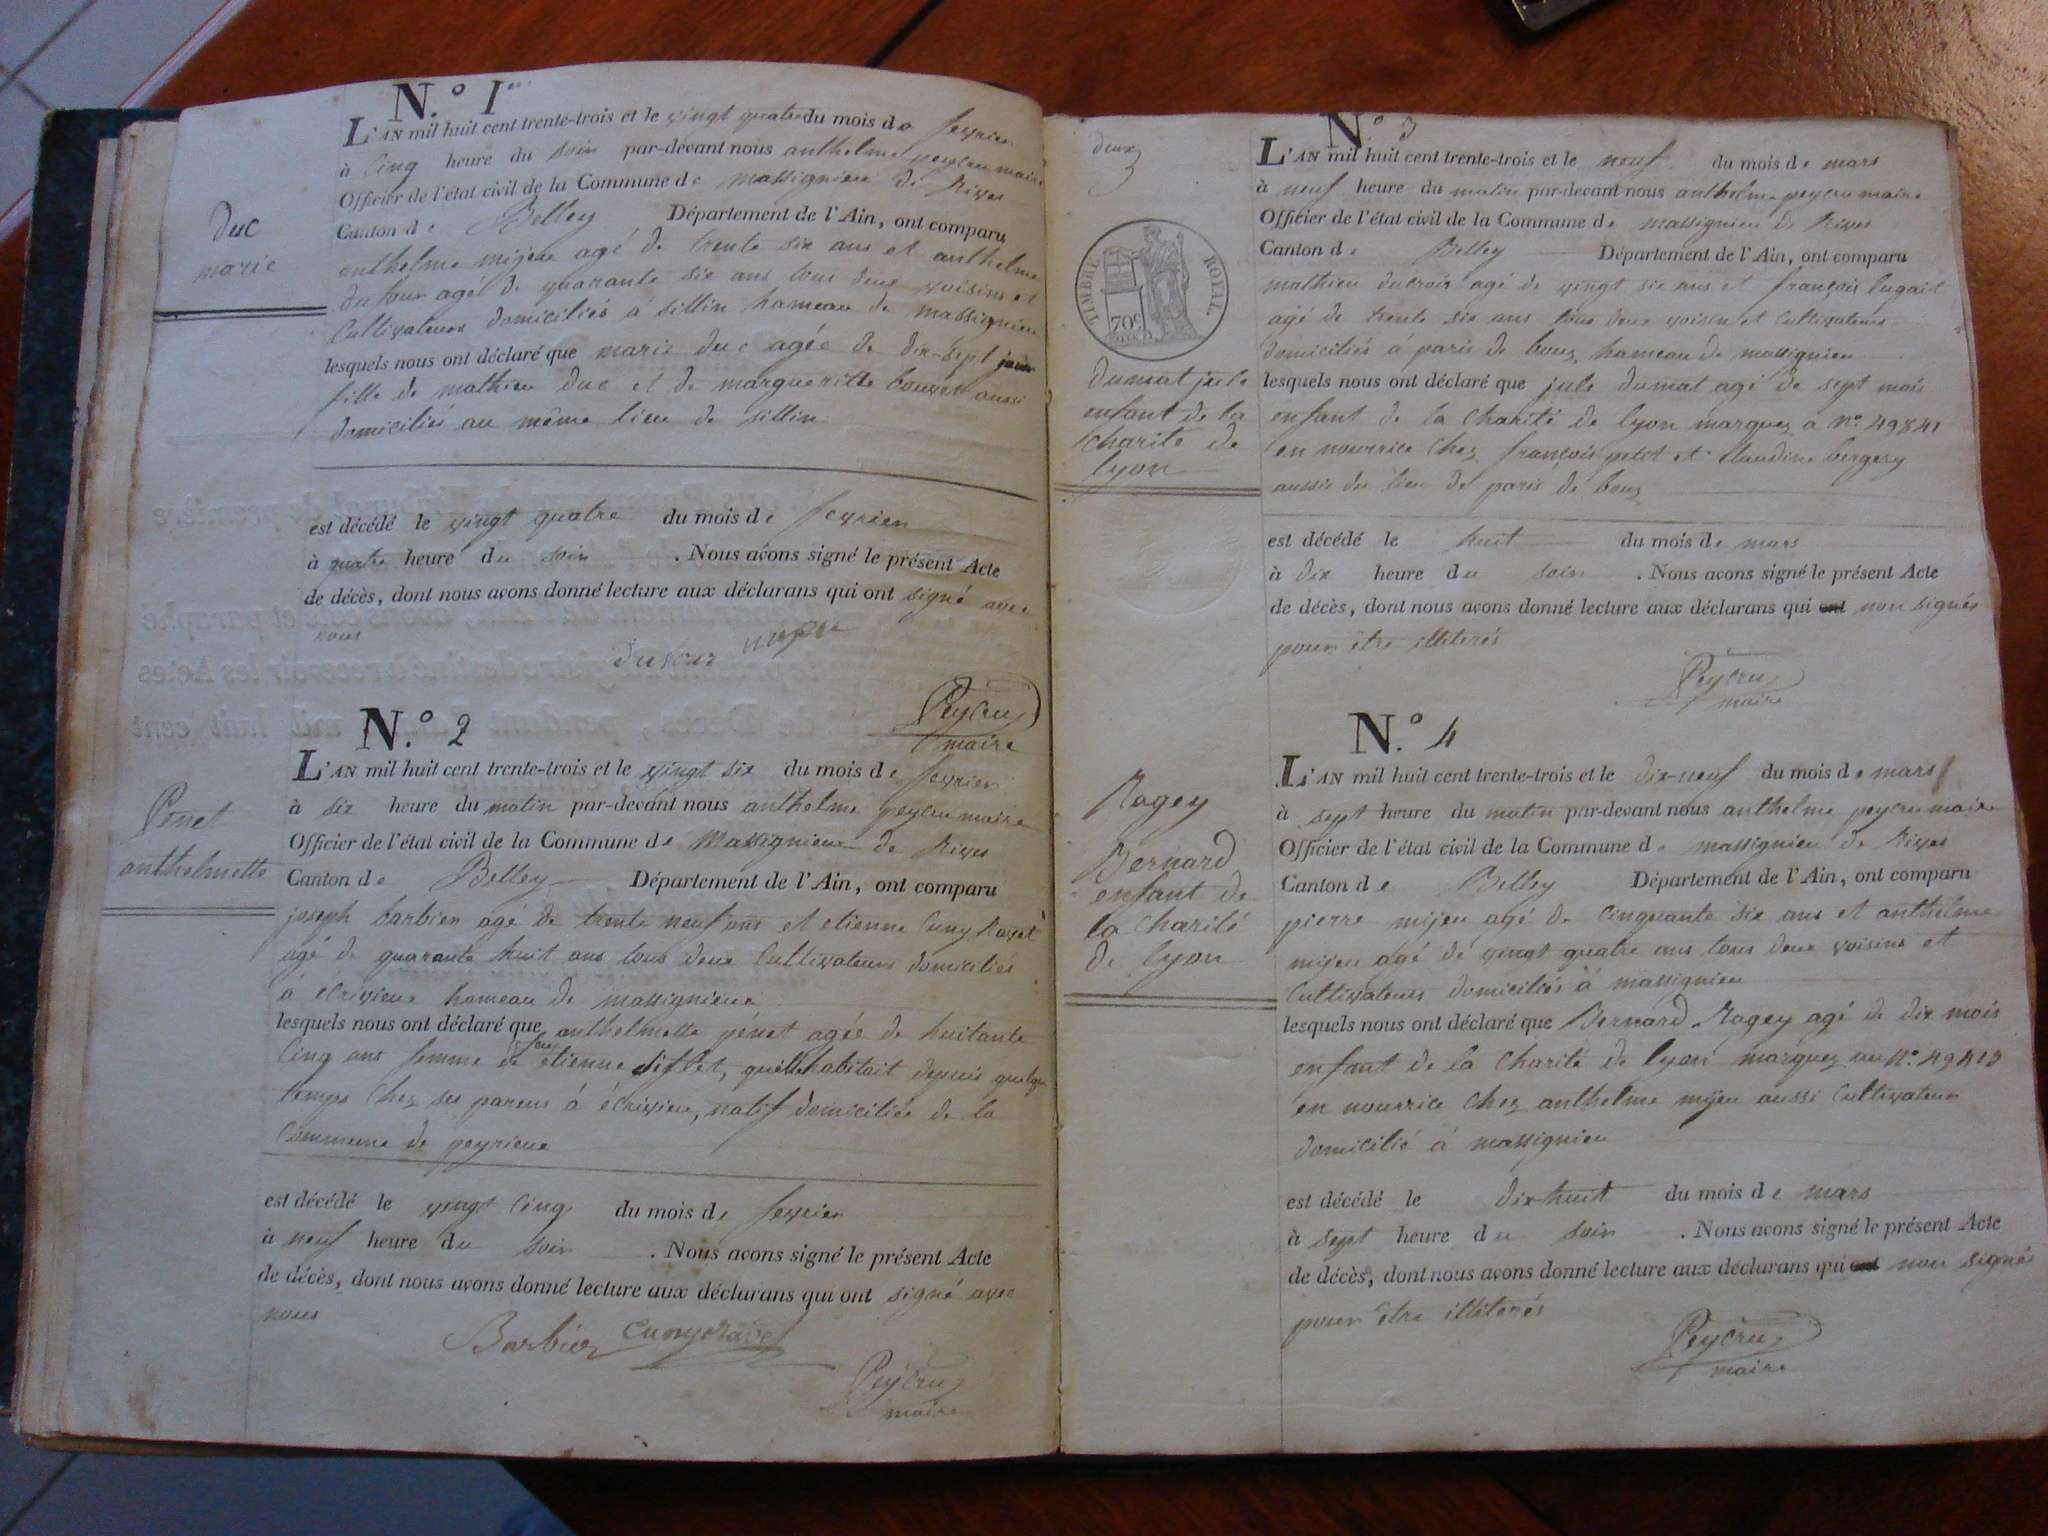 N.º 1er
L'AN mil huit cent trente-trois et le vingt quatre du mois de fevrier
à Cinq heure du soir par-devant nous anthelme peycru maire
Officier de l'état civil de la Commune de massignieu de Rives
Canton de Belley Département de l'Ain, ont comparu
anthelme mijeu agé de trente six ans et anthelme
dufour agé de quarante six ans tous deux voisins et
Cultivateurs domiciliés a sillin hameau de massignieu
lesquels nous ont déclaré que marie duc agée de dix-sept jours
fille de mathieu duc et de margueritte bouvet aussi
domiciliés au même lieu de sillin
est décédé le vingt quatre du mois de fevrier
à quatre heure du soir . Nous avons signé le présent Acte
de décès, dont nous avons donné lecture aux déclarans qui ont signé avec
nous
dufour
Peycru
maire
duc
marie
N.º 2
L'AN mil huit cent trente-trois et le vingt six du mois de fevrier
à six heure du matin par-devant nous anthelme peycru maire
Officier de l'état civil de la Commune de Massignieu de Rives
Canton de Belley Département de l'Ain, ont comparu
joseph barbier agé de trente neuf ans et etienne Cuny Ravet
agé de quarante huit ans tous deux Cultivateurs domiciliés
à écrivieux hameau de massignieux
lesquels nous ont déclaré que anthelmette pénet agée de huitante
Cinq ans femme de feu etienne siflet, quelle habitait depuis quelque
temps Chez ses parens á écrivieu, natif domiciliée de la
Commune de peyrieux
est décédé le vingt Cinq du mois de fevrier
à neuf heure du soir . Nous avons signé le présent Acte
de décès, dont nous avons donné lecture aux déclarans qui ont signé avec
nous
Barbier Cunyravet
Peycru
maire
Penet
anthelmette
deux
N.º 3
L'AN mil huit cent trente-trois et le neuf du mois de mars
à neuf heure du matin par-devant nous anthelme peycru maire
Officier de l'état civil de la Commune de massignieu de Rives
Canton de Belley Département de l'Ain, ont comparu
mathieu ducroix agé de vingt six ans et françois lugait
agé de trente six ans tous deux voisin et Cultivateurs
domiciliés á paris de bouz hameau de massignieu
lesquels nous ont déclaré que jule dumat agé de sept mois
enfant de la Charité de lyon marquez a Nº 49841
en nourrice Chez françois petet et Claudine bergery
aussie du lieu de paris de bouz
est décédé le huit du mois de mars
à dix heure du soir . Nous avons signé le présent Acte
de décès, dont nous avons donné lecture aux déclarans qui ont non signés
pour être illiterés
Peycru
maire
TIMBRE ROYAL
70c
dumat jule
enfant de la
Charité de
lyon
N.º 4
L'AN mil huit cent trente-trois et le dix-neuf du mois de mars
à sept heure du matin par-devant nous anthelme peycru maire
Officier de l'état civil de la Commune de massignieu de Rives
Canton de Belley Département de l'Ain, ont comparu
pierre mijeu agé de Cinquante six ans et anthelme
mijeu agé de vingt quatre ans tous deux voisins et
Cultivateurs domiciliés á massignieu
lesquels nous ont déclaré que Bernard Ragey agé de dix mois
enfant de la Charité de lyon marquez au Nº 49413
en nourrice Chez anthelme mijeu aussi Cultivateur
domicilié á massignieu
est décédé le dix-huit du mois de mars
à sept heure du soir . Nous avons signé le présent Acte
de décès, dont nous avons donné lecture aux déclarans qui ont non signés
pour être illiterés
Peycru
maire
Ragey
Bernard
enfant de
la Charité
de lyon